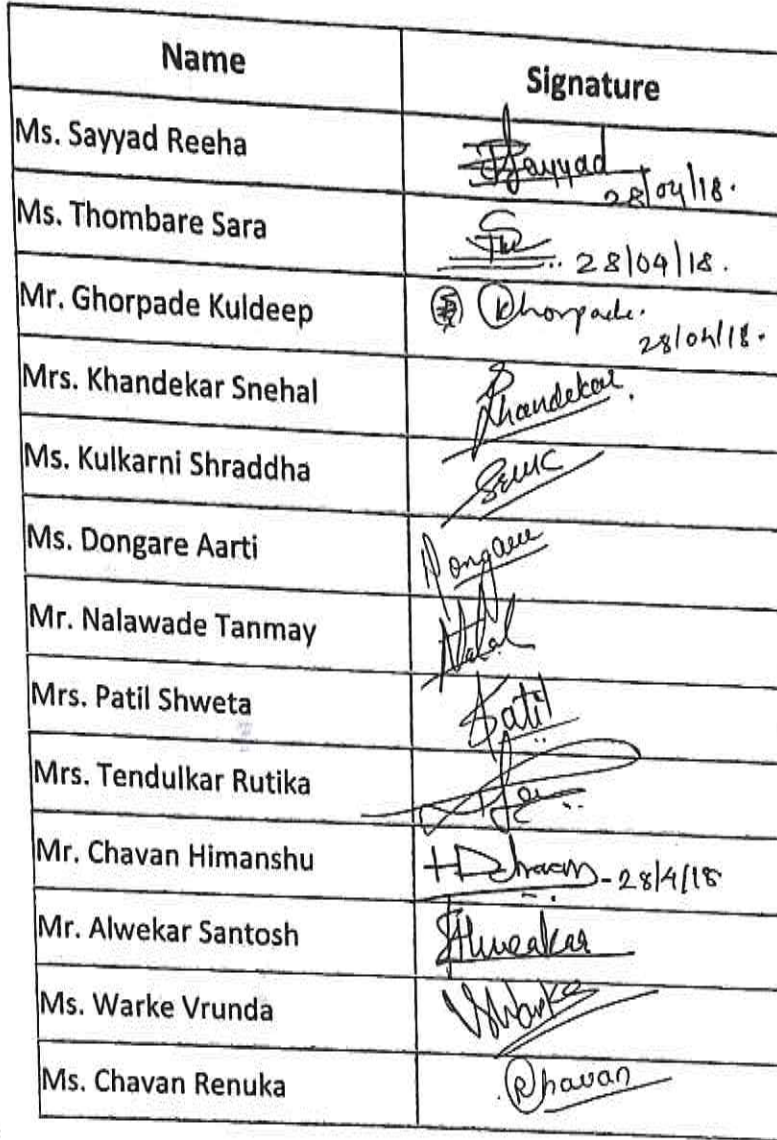 Name Signature
Ms. Sayyad Reeha Sayyad 28/04/18.
Ms. Thombare Sara 28/04/18.
Mr. Ghorpade Kuldeep Khorpade. 28/04/18.
Mrs. Khandekar Snehal Khandekar.
Ms. Kulkarni Shraddha
Ms. Dongare Aarti Dongare
Mr. Nalawade Tanmay Nalal
Mrs. Patil Shweta Patil
Mrs. Tendulkar Rutika
Mr. Chavan Himanshu 28/4/18
Mr. Alwekar Santosh
Ms. Warke Vrunda VWarke
Ms. Chavan Renuka Rhavan